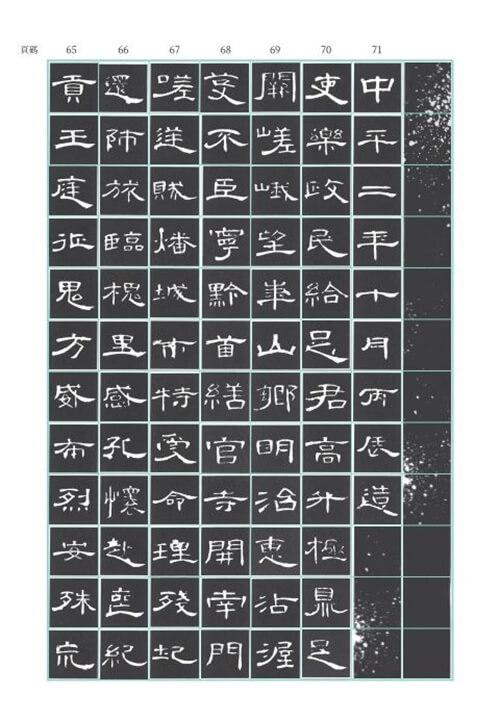 頁碼 65 66 67 68 69 70 71
貢王庭征鬼方威布烈安殊荒
還師旅臨槐里感孔懷赴喪紀
嗟逆賊燔城市特受命理殘圮
芟不臣寧黔首繕官寺開南門
闕嵯峨望華山鄉明治惠沾渥
吏樂政民給足君高升極鼎足
中平二年十月丙辰造